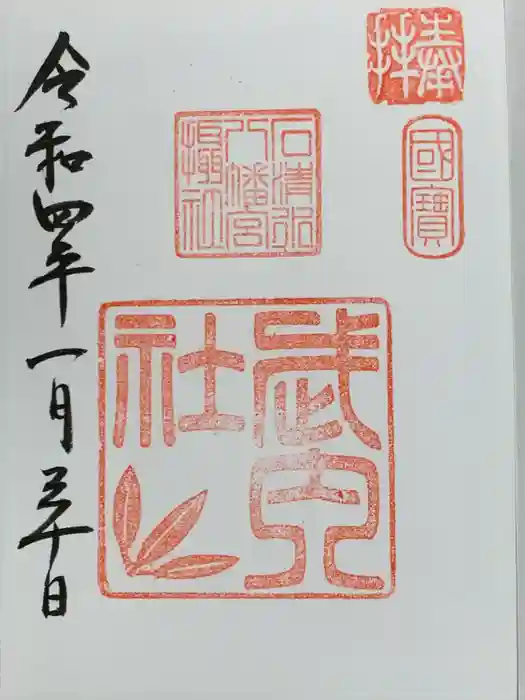 奉拜
國寶
石清水
八幡宮
攝社
武内
社
令和四年一月三十日